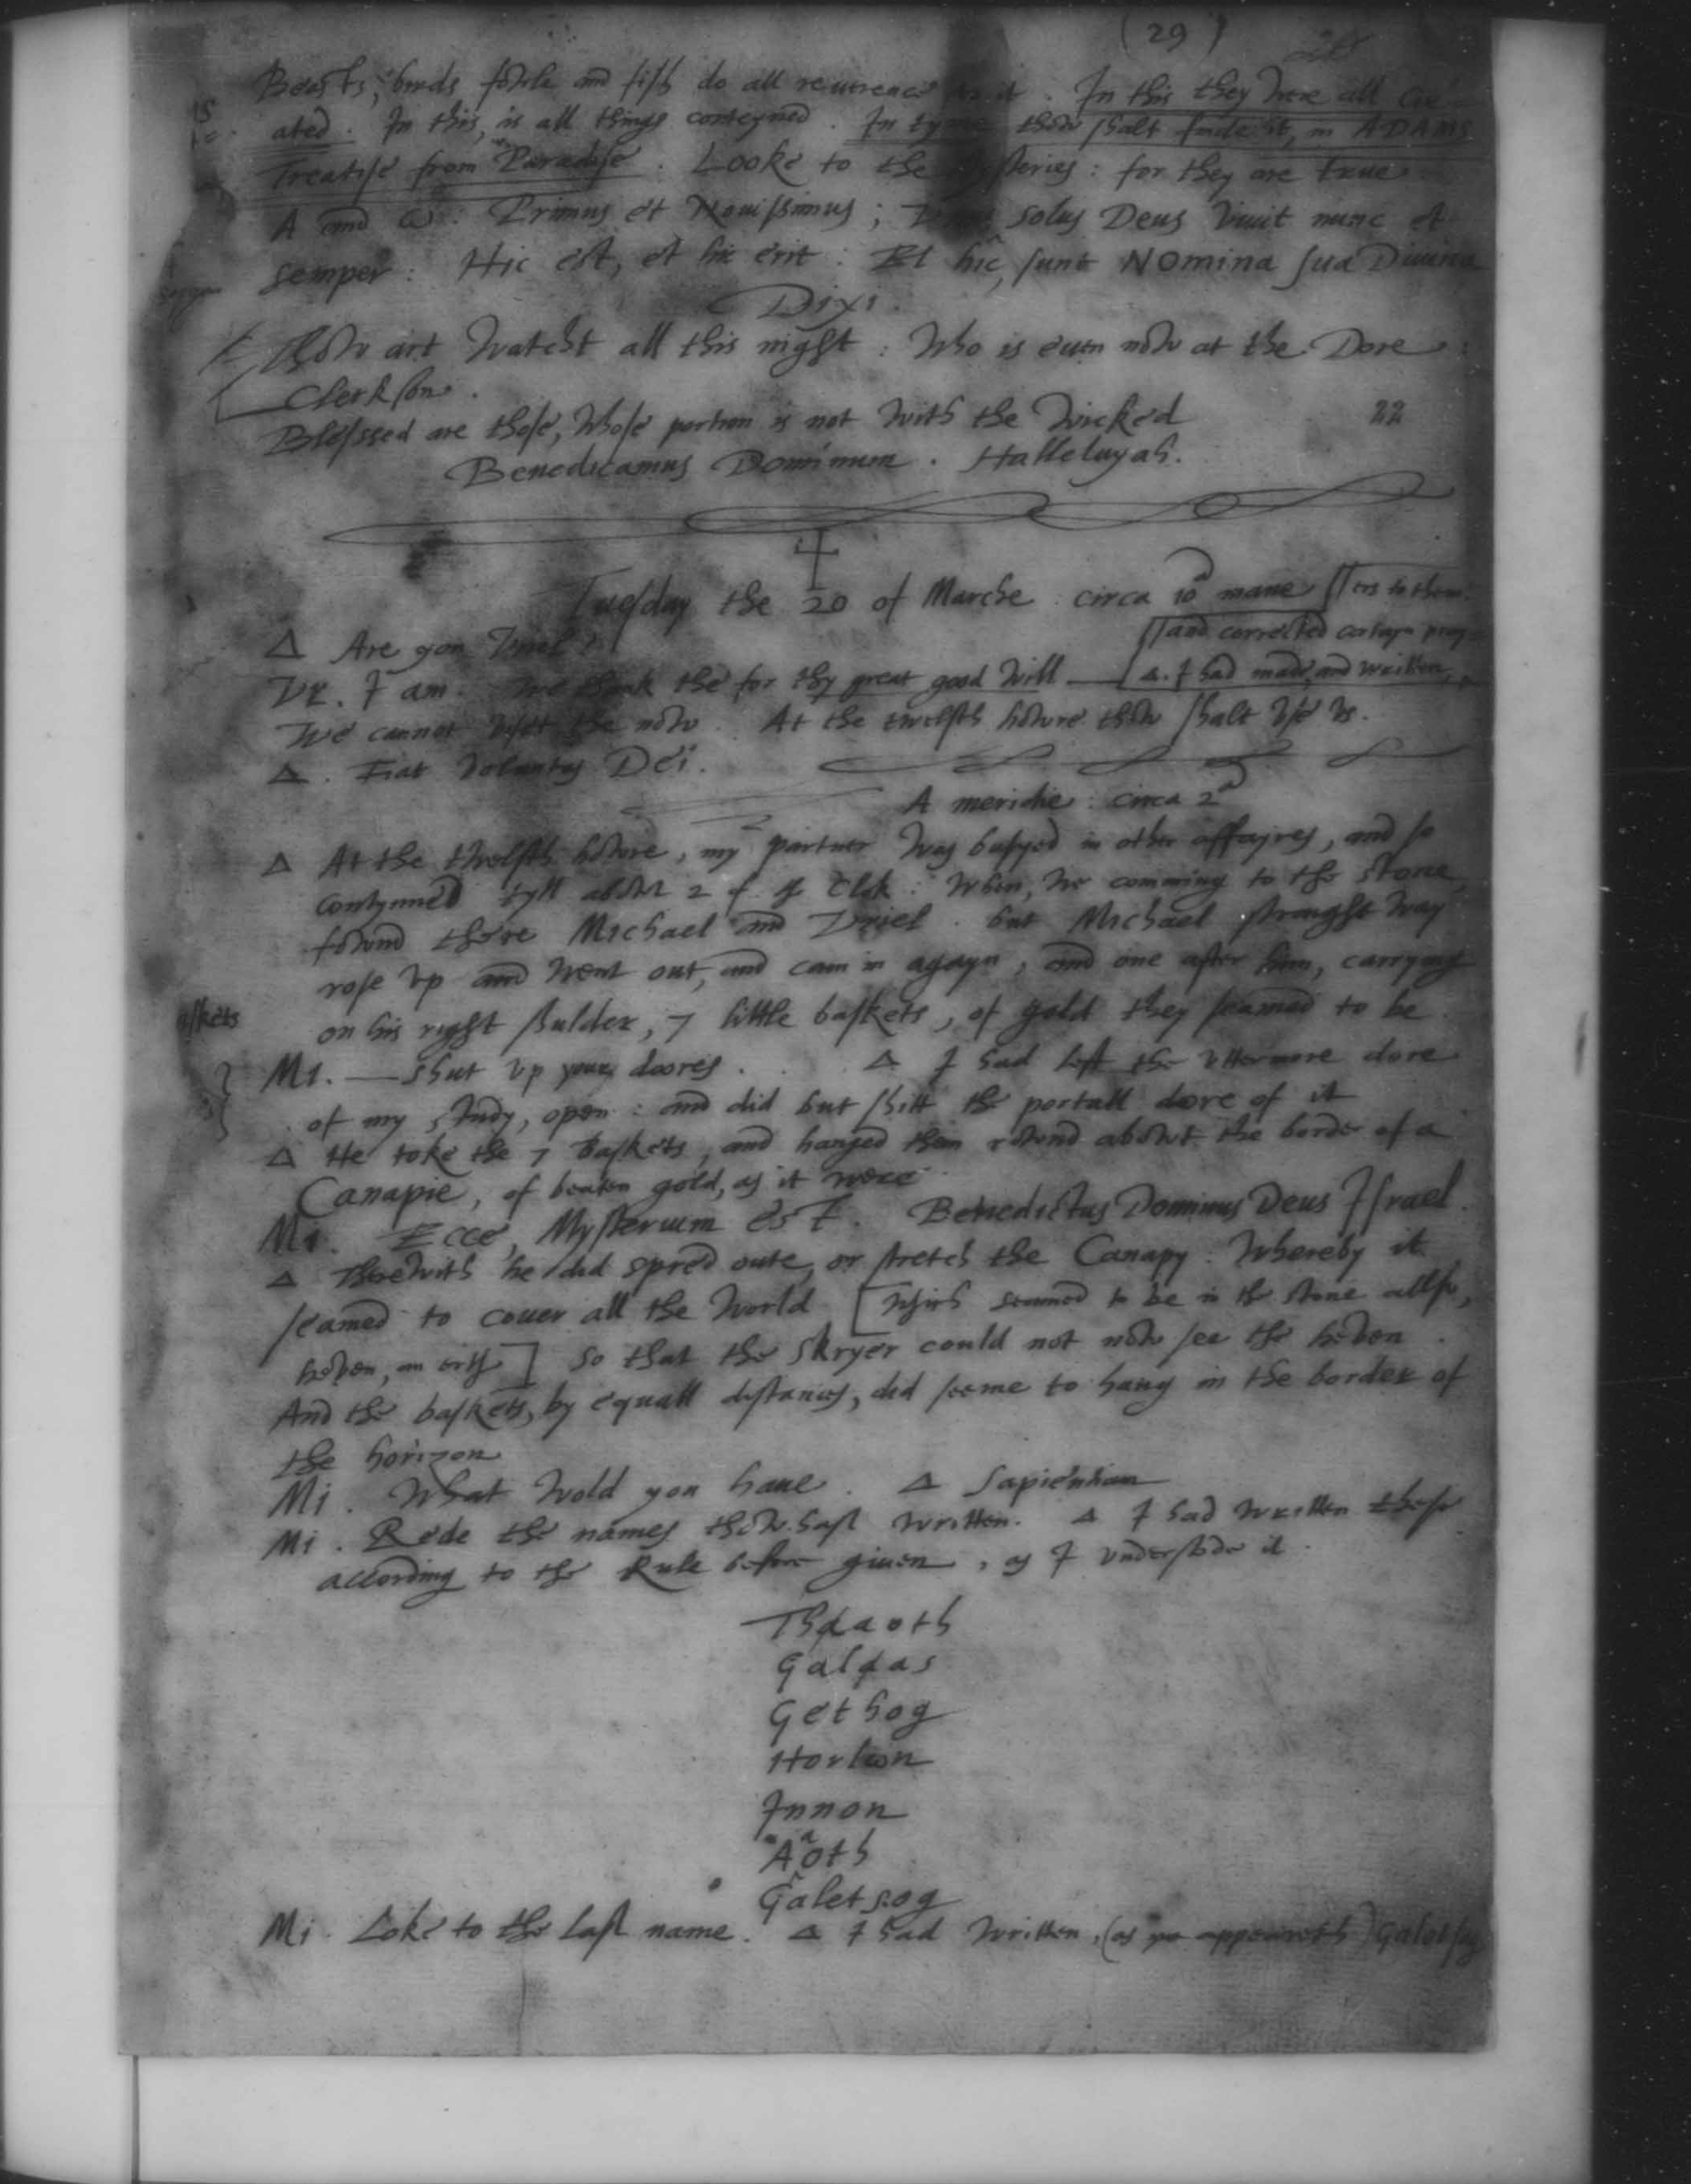 (29)
Beasts, birds fowle and fish do all reuerence to it. In this they were all Cre
ated. In this, is all things conteyned. In tyme thow shalt finde it, in ADAMS
Treatise from Paradise. Looke to the Mysteries: for they are true
A and ω: Primus et Nouissimus; solus Deus viuit nunc et
semper: Hic est, et hic erit: Et hîc, sunt Nomina sua Diuina
Dixi.
Thow art watcht all this night: Who is euen now at the Dore:
Clerkson.
Blessed are those, whose portion is not with the wicked
22
Benedicamus Dominum. Halleluyah.
Tuesday the 20 of Marche: circa 10ᵃ mane
ers to them.
and corrected certayn pray
Δ Are you Vriel?
Δ. I had made, and written,
VR. I am. We thank the for thy great good will
We cannot viset the now. At the twelfth howre thow shalt vse vs.
Δ. Fiat voluntas Dei.
A meridie: circa 2ᵃ
Δ At the twelfth howre, my partner was busyed in other affayres, and so
contynued tyll abowt 2 of the Clok: when, we comming to the stone,
fownd there Michael and Vriel: but Michael straight way
rose vp and went out, and cam in agayn, and one after him, carrying
skets
on his right shulder, 7 little baskets, of gold they seamed to be
Mi. — Shut vp your doores. Δ I had left the vttermore dore
of my study, open: and did but shitt the portall dore of it
Δ He toke the 7 Baskets, and hanged them rownd abowt the border of a
Canapie, of beaten gold, as it were
Mi. Ecce, Mysterium est. Benedictus Dominus Deus Israel.
Δ Therewith he did spred oute, or stretch the Canapy: Whereby it
seamed to couer all the World [which seamed to be in the stone allso,
heven, an erth] so that the skryer could not now see the heven.
And the baskets, by equall distances, did seeme to hang in the border of
the horizon
Mi. What wold you haue. Δ Sapientiam
Mi. Rede the names thow hast written. Δ I had written these
according to the Rule before giuen, as I vnderstode it.
Thaaoth
Galaas
Gethog
Horlωn
Innon
Aaoth
Galethog
Mi. Loke to the last name. Δ I had written, (as yo appeareth)